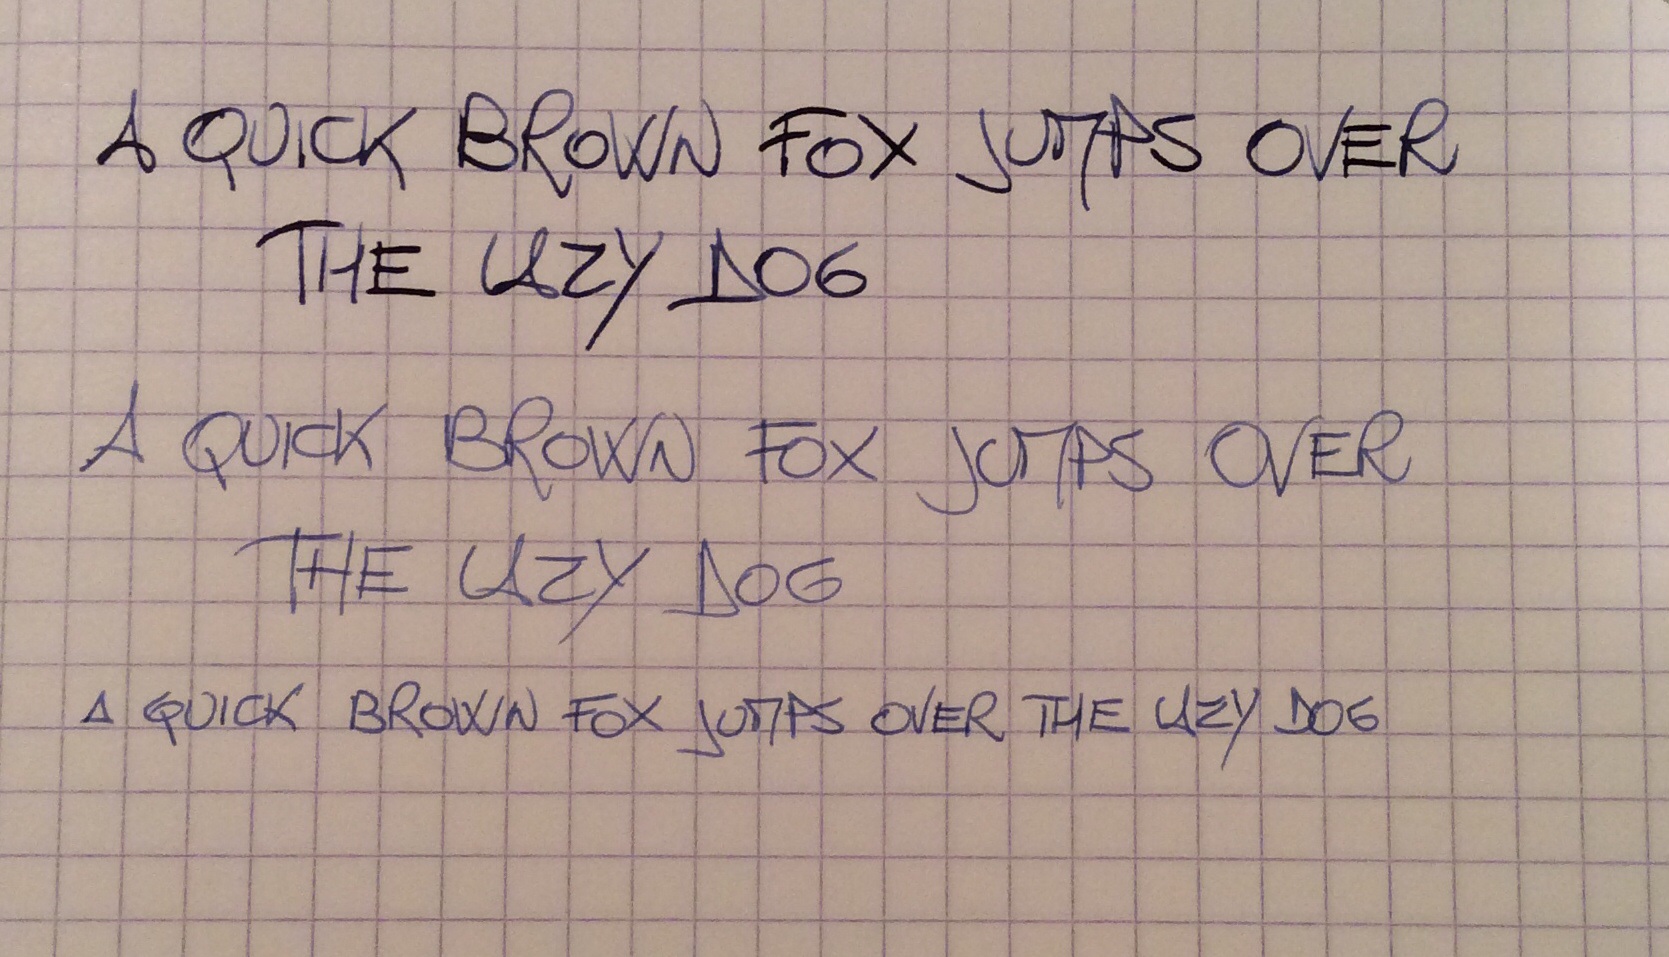 A QUICK BROWN FOX JUMPS OVER
THE LAZY DOG
A QUICK BROWN FOX JUMPS OVER
THE LAZY DOG
A QUICK BROWN FOX JUMPS OVER THE LAZY DOG